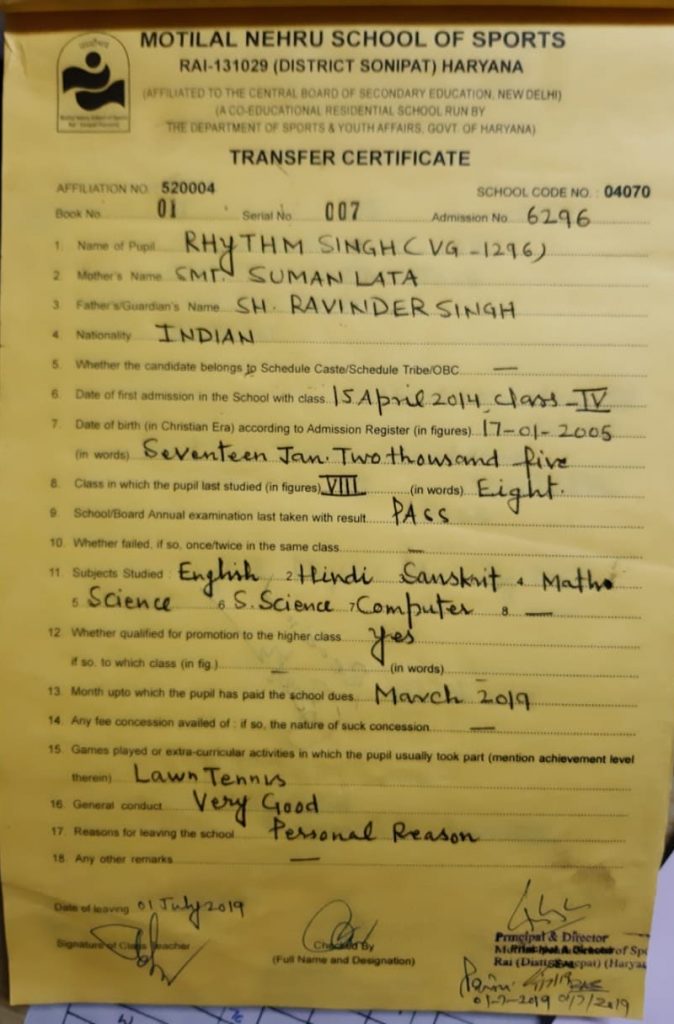 MOTILAL NEHRU SCHOOL OF SPORTS
RAI-131029 (DISTRICT SONIPAT) HARYANA
(AFFILIATED TO THE CENTRAL BOARD OF SECONDARY EDUCATION, NEW DELHI)
(A CO-EDUCATIONAL RESIDENTIAL SCHOOL RUN BY
THE DEPARTMENT OF SPORTS & YOUTH AFFAIRS, GOVT. OF HARYANA)
TRANSFER CERTIFICATE
AFFILIATION NO. 520004 SCHOOL CODE NO. : 04070
Book No. 01 Serial No. 007 Admission No. 6296
1. Name of Pupil RHYTHM SINGH (VG-1296)
2. Mother's Name SMT. SUMAN LATA
3. Father's/Guardian's Name SH. RAVINDER SINGH
4. Nationality INDIAN
5. Whether the candidate belongs to Schedule Caste/Schedule Tribe/OBC —
6. Date of first admission in the School with class 15 April 2014, Class-IV
7. Date of birth (in Christian Era) according to Admission Register (in figures) 17-01-2005
(in words) Seventeen Jan. Two thousand five
8. Class in which the pupil last studied (in figures) VIII (in words) Eight.
9. School/Board Annual examination last taken with result PASS
10. Whether failed, if so, once/twice in the same class —
11. Subjects Studied 1 English 2 Hindi 3 Sanskrit 4 Maths
5 Science 6 S.Science 7 Computer 8 —
12. Whether qualified for promotion to the higher class Yes
if so, to which class (in fig.) — (in words) —
13. Month upto which the pupil has paid the school dues March 2019
14. Any fee concession availed of : if so, the nature of suck concession —
15. Games played or extra-curricular activities in which the pupil usually took part (mention achievement level
therein) Lawn Tennis
16. General conduct Very Good
17. Reasons for leaving the school Personal Reason
18. Any other remarks —
Date of leaving 01 July 2019
Signature of Class Teacher Checked By Principal & Director
(Full Name and Designation)
Rai (Haryana
01-7-2019 01/7/2019